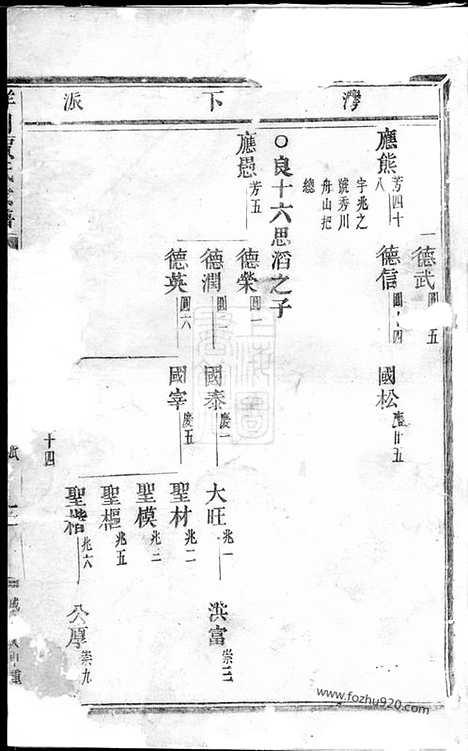 灣下派
德武 圓 五
應熊 芳四十八
字兆之
號秀川
舟山把
總
德信 圓 四
國松 慶廿五
○良十六思滔之子
應愚 芳五
德榮 圓一
德潤 圓二
國泰 慶一
大旺 兆一
洪富 崇三
德英 圓六
國宰 慶五
聖材 兆二
聖模 兆三
聖樞 兆五
聖楷 兆六
公厚 崇九
十四
www.fozhu920.com